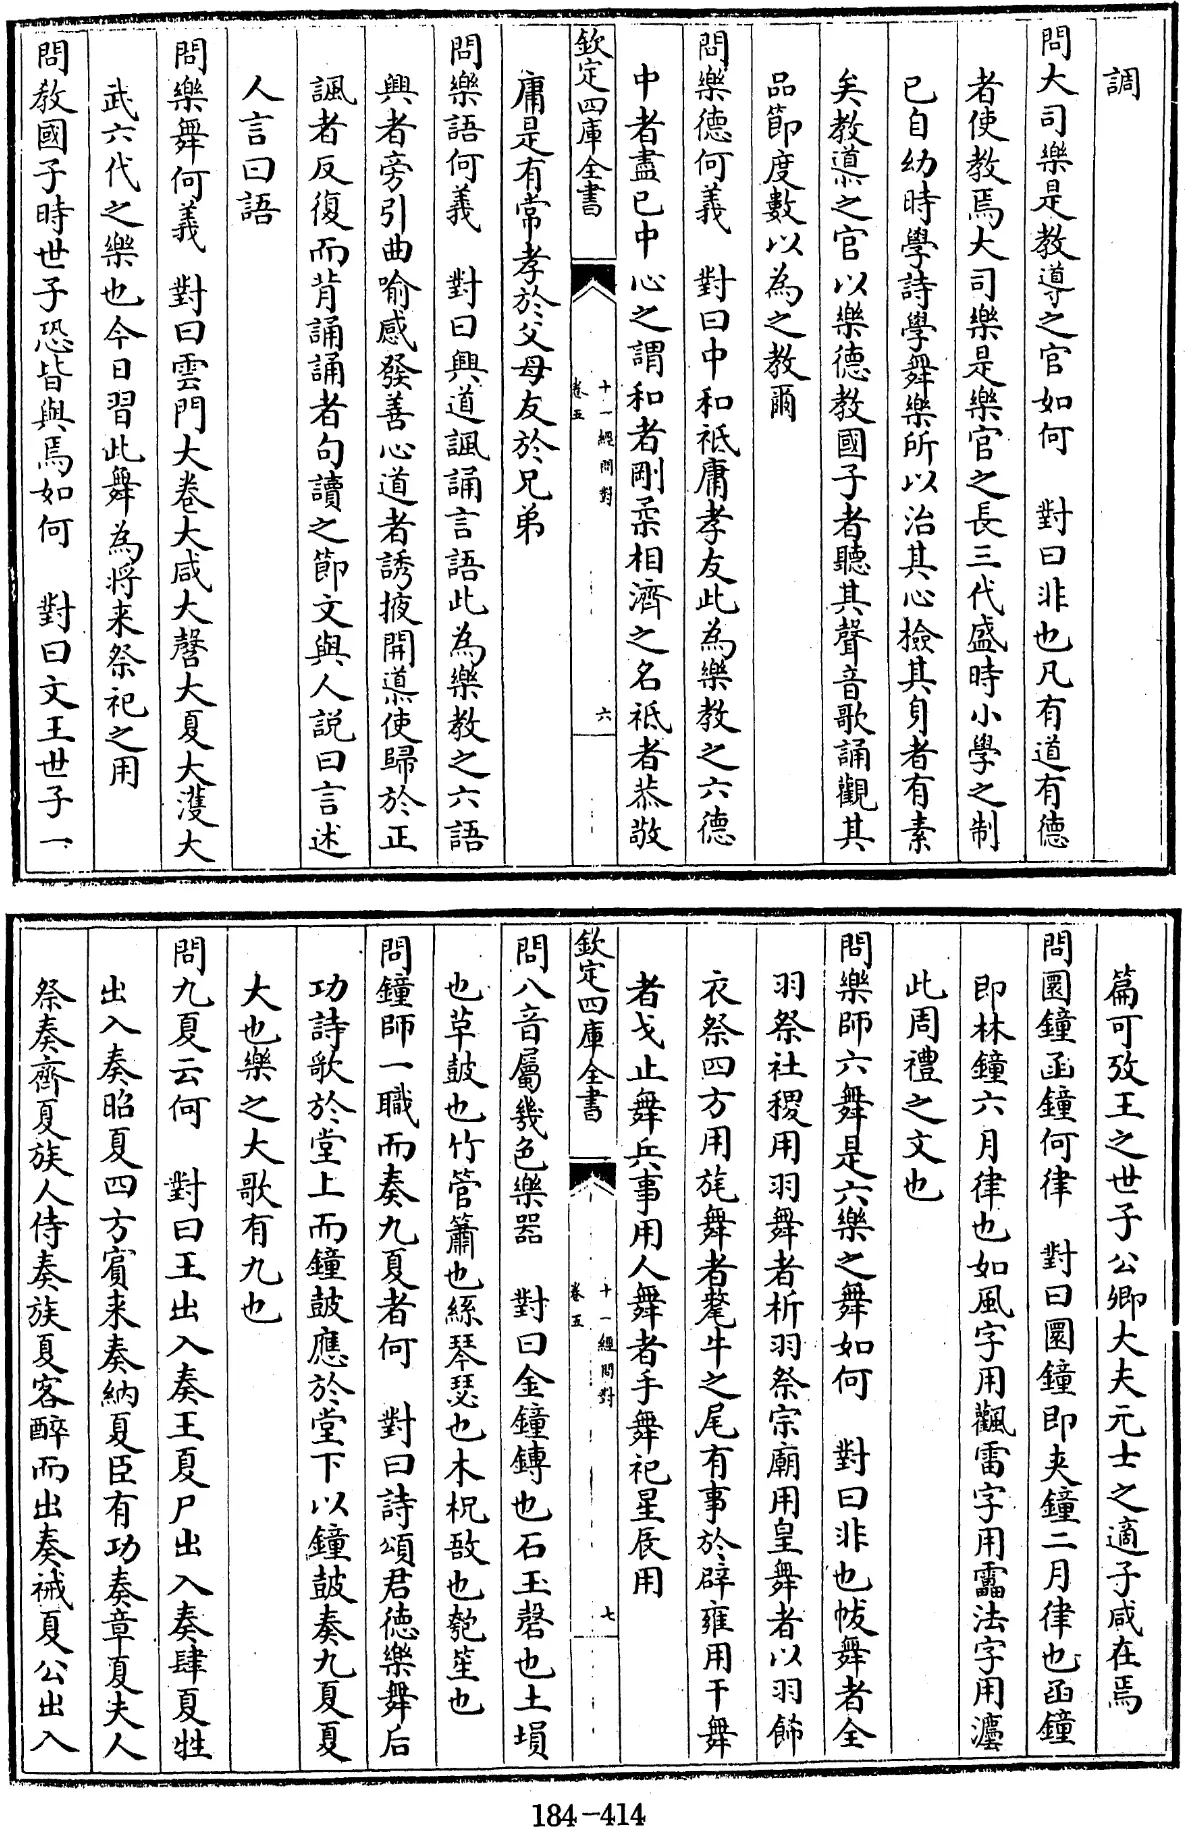 調
問大司樂是教導之官如何　對曰非也凡有道有德
者使教焉大司樂是樂官之長三代盛時小學之制
已自幼時學詩學舞樂所以治其心檢其身者有素
矣教導之官以樂德教國子者聽其聲音歌誦觀其
品節度數以為之教爾
問樂德何義　對曰中和祗庸孝友此為樂教之六德
中者盡已中心之謂和者剛柔相濟之名祗者恭敬
欽定四庫全書
十一經問對
卷五
六
庸是有常孝於父母友於兄弟
問樂語何義　對曰興道諷誦言語此為樂教之六語
興者旁引曲喻感發善心道者誘掖開導使歸於正
諷者反復而背誦誦者句讀之節文與人說曰言述
人言曰語
問樂舞何義　對曰雲門大卷大咸大㲈大夏大濩大
武六代之樂也今日習此舞為將来祭祀之用
問教國子時世子恐皆與焉如何　對曰文王世子一
篇可攷王之世子公卿大夫元士之適子咸在焉
問圜鐘函鐘何律　對曰圜鐘即夾鐘二月律也函鐘
即林鐘六月律也如風字用飌雷字用靁法字用灋
此周禮之文也
問樂師六舞是六樂之舞如何　對曰非也帗舞者全
羽祭社稷用羽舞者析羽祭宗廟用皇舞者以羽飾
衣祭四方用旄舞者氂牛之尾有事於辟雍用干舞
者戈止舞兵事用人舞者手舞祀星辰用
欽定四庫全書
十一經問對
卷五
七
問八音屬幾色樂器　對曰金鐘鎛也石玉磬也土塤
也革鼓也竹管簫也絲琴瑟也木柷敔也匏笙也
問鐘師一職而奏九夏者何　對曰詩頌君德樂舞后
功詩歌於堂上而鐘鼓應於堂下以鐘鼓奏九夏夏
大也樂之大歌有九也
問九夏云何　對曰王出入奏王夏尸出入奏肆夏牲
出入奏昭夏四方賓来奏納夏臣有功奏章夏夫人
祭奏齊夏族人侍奏族夏客醉而出奏祴夏公出入
184-414